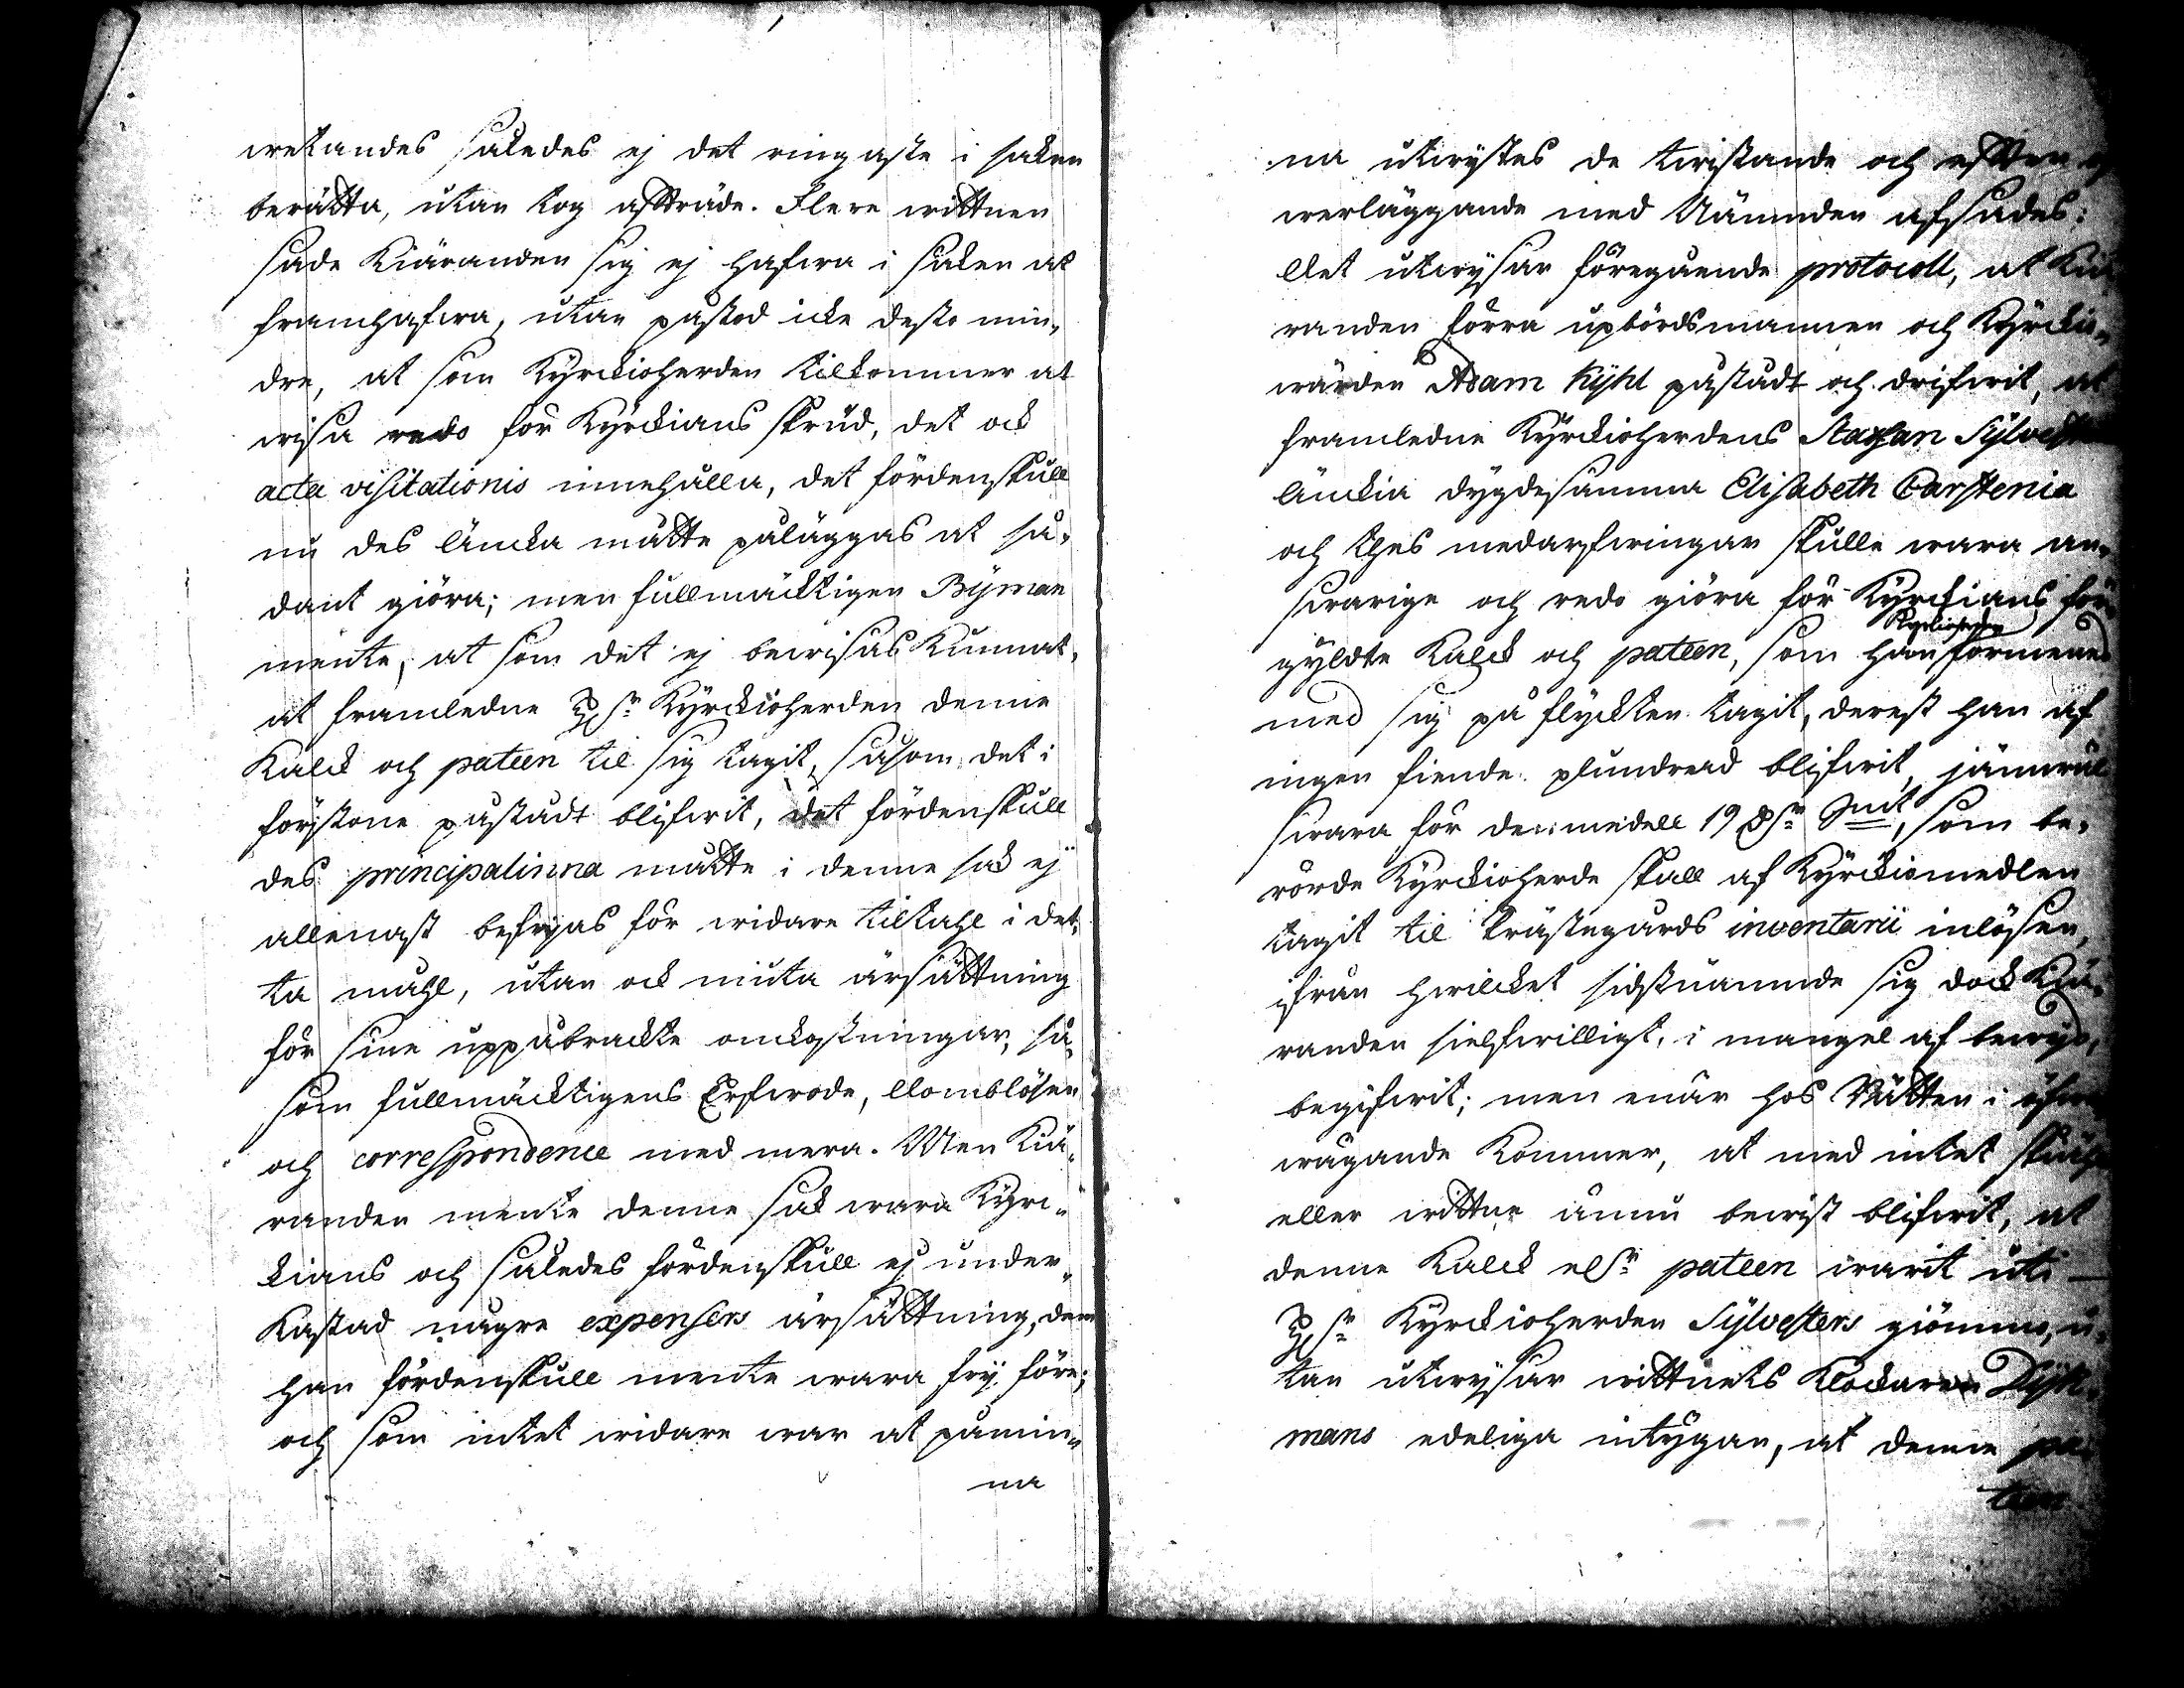 wetandes således ej det ringaste i saken
berätta, utan tog affträde. Flere wittnen
sade Kiäranden sig ej hafwa i saken at
framhafwa, utan påstod icke desto min„
dre, at som Kyrckioherden tilkommer at
wisa redo för Kyrckians skrud, det ock
acta visitationis innehålla, det fördenskull
nu des äncka måtte påläggas at så„
dant giöra; men fullmäcktigen Byman
mente, at som det ej bewisas Kunnat,
at framledne H:r Kyrckioherden denne
Kalck och pateen til sig tagit, såsom det i
förstone påstådt blifwit, det fördenskull
des principalinna måtte i denne sak ej
allenast befrijas för widare tiltahl i det„
ta mahl, utan ock niuta ärsättning
för sine uppåbrackte omkostningar, så„
som fullmäcktigens Erfwode, Domblösen
och correspondence med mera. Men Kiä„
randen mente denne sak wara Kyrc„
kians och således fördenskull ej under„
Kastad någre expensers ärsättning, dem
han fördenskull mente wara fry före;
och som intet widare war at påmin„
na
na utwystes de twistande och effter
werläggande med Nämnden afsades:
Det utwysar föregående protocoll, at Kiä
randen förra upbördsmannen och Kyrckio„
wärden Adam Kyhl påstådt och drifwit, at
framledne Kyrckioherdens Staffan Sylvest
änckia dygdesamma Elisabeth Carstenia
och thes medarfwingar skulle wara an„
swarige och redo giöra för Kyrckians för
gyldte Kalck och pateen, som han Kyrckioherden formene
med sig på flyckten tagit, derest han af
ingen fiende plundread blifwit, jämwäl
swara för denmedell 19 D:r Smt, som be„
rörde Kyrckioherde skall af Kyrckiomedlen
tagit til Prästegårds inventarii inlösen,
ifrån hwilcket sidstnämnde sig dock Kiä„
randen sielfwilligt, i mangel af bewys,
begifwit; men enär hos Rätten i öfwer
wägande Kommer, at med intet skiähl
eller wittne ännu bewist blifwit, at
denne Kalck el:r pateen warit uti
H:r Kyrckioherden Sylvesters giömmo, u„
tan utwysar wittnets Klockaren Dyk„
mans edeliga intygan, at denne pa„
teen